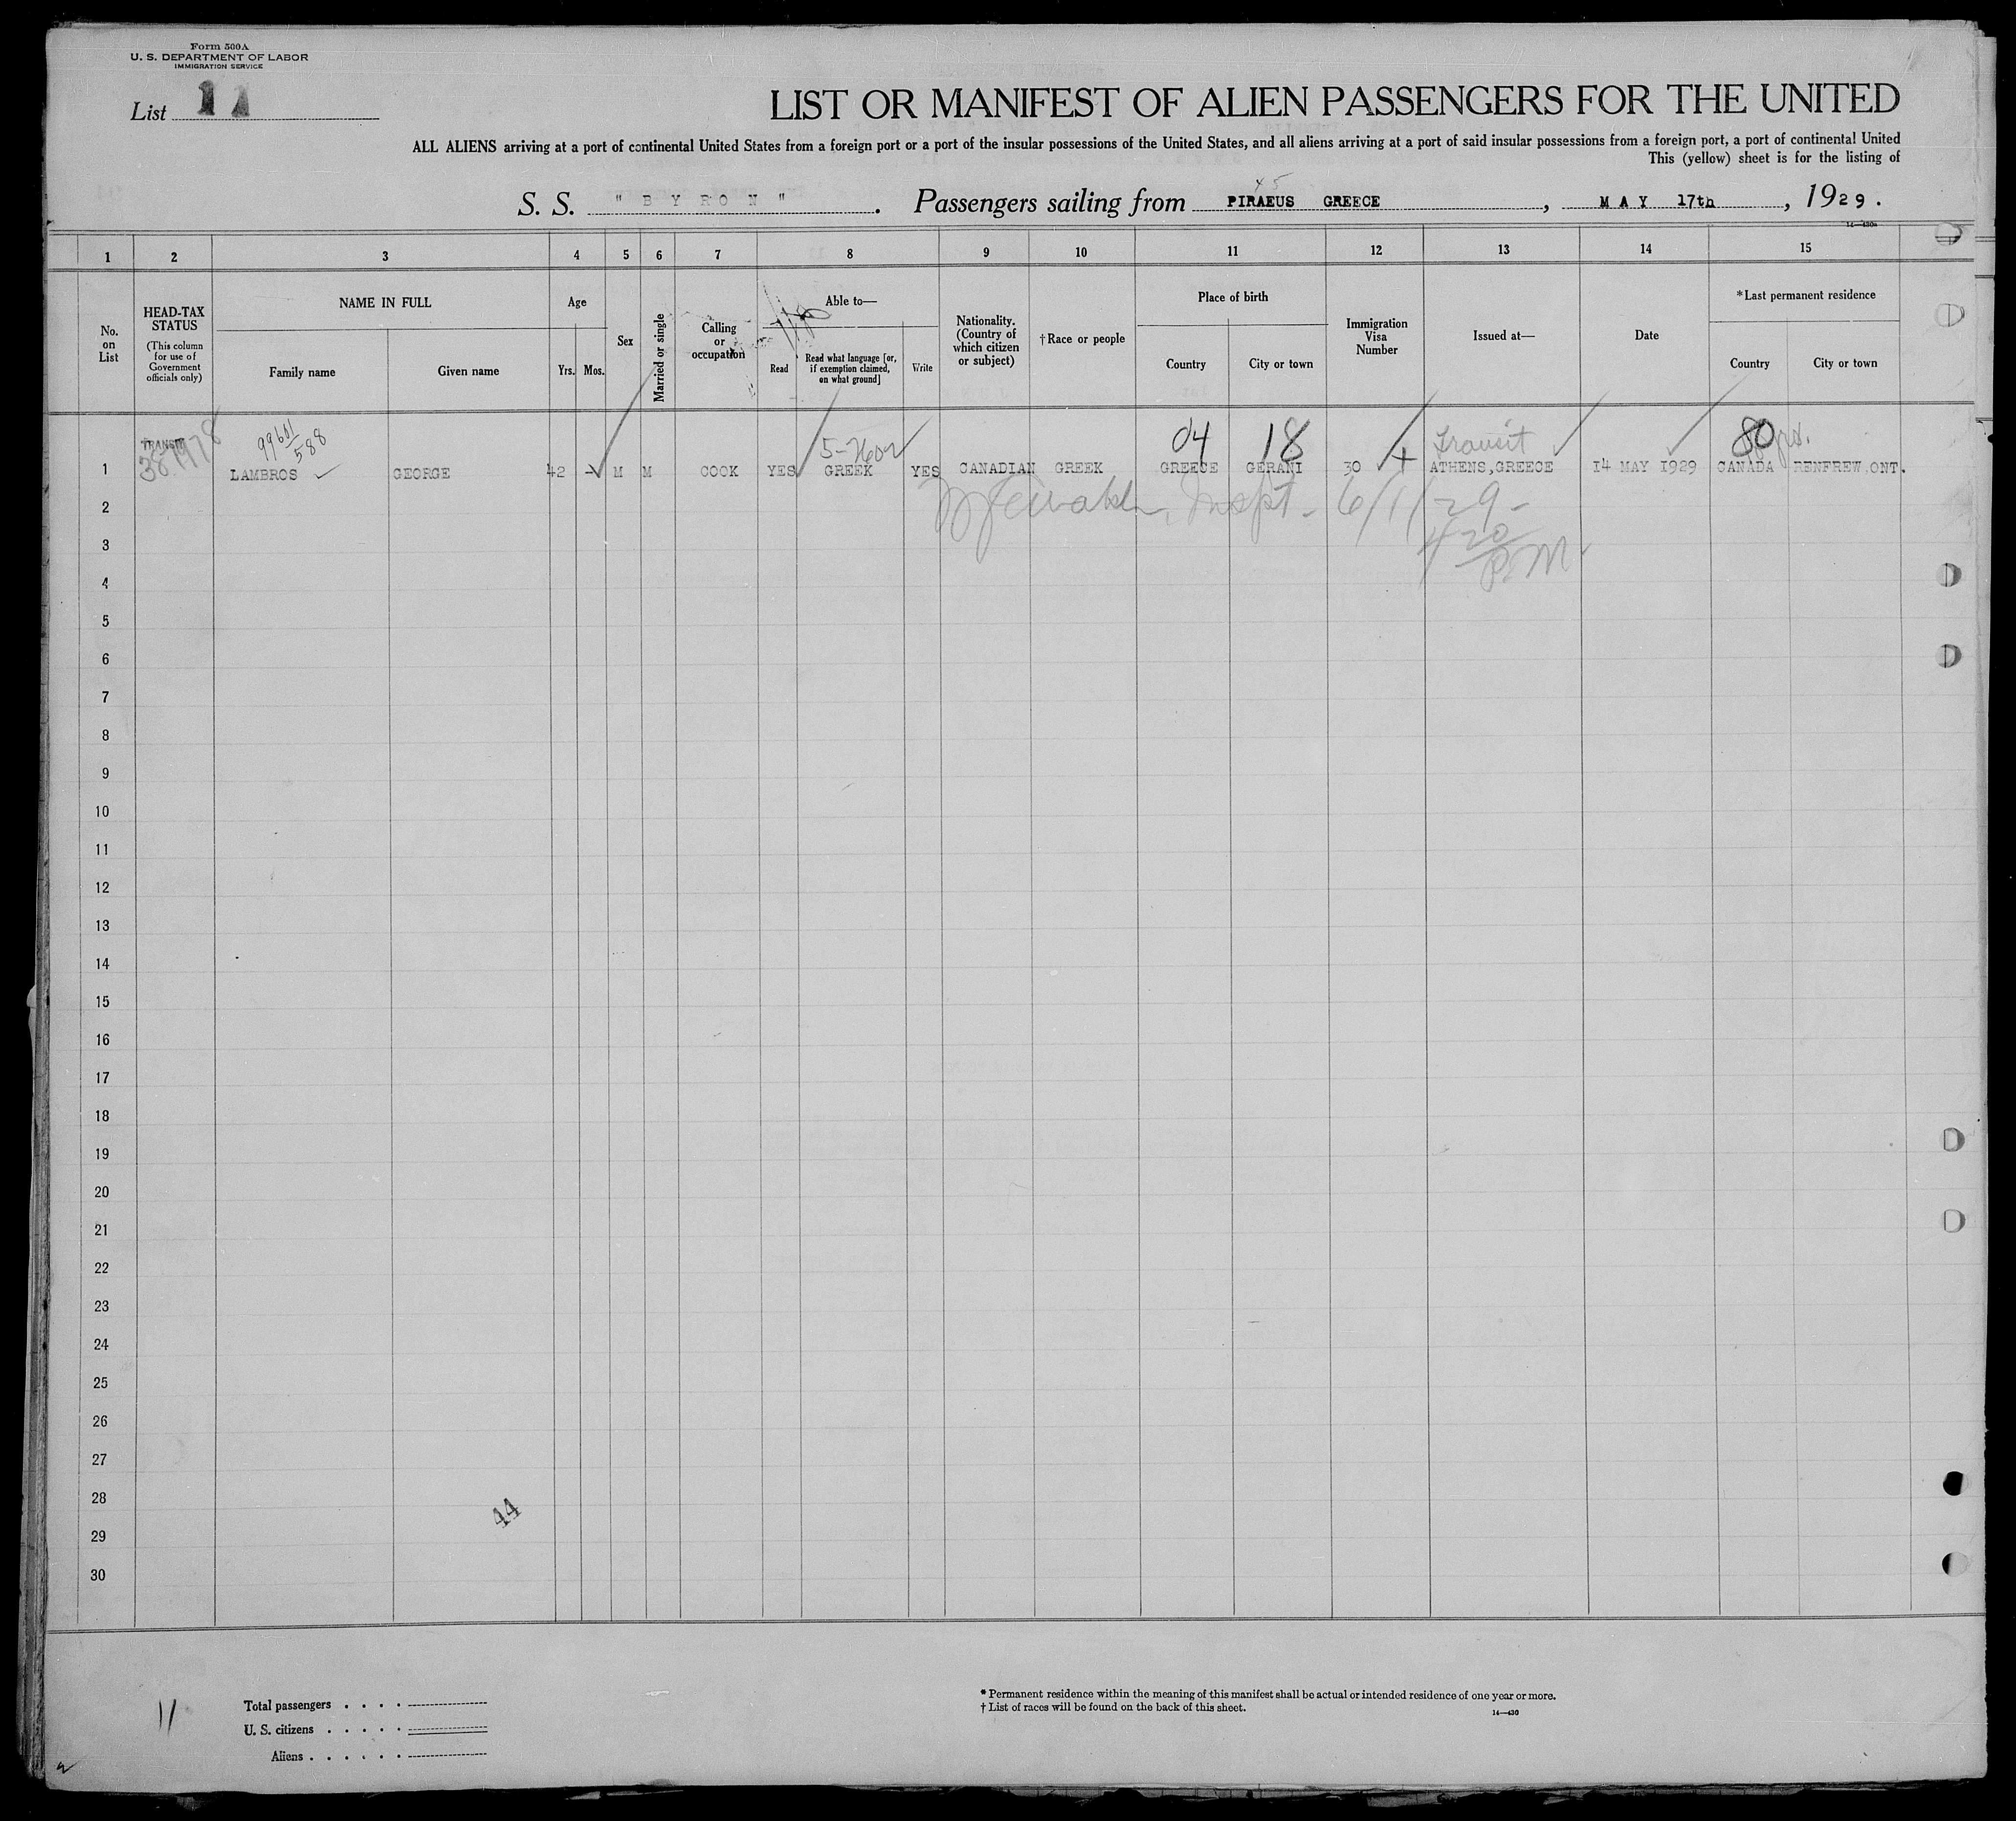 Form 500A
U. S. DEPARTMENT OF LABOR
IMMIGRATION SERVICE
List 11
LIST OR MANIFEST OF ALIEN PASSENGERS FOR THE UNITED
ALL ALIENS arriving at a port of continental United States from a foreign port or a port of the insular possessions of the United States, and all aliens arriving at a port of said insular possessions from a foreign port, a port of continental United
This (yellow) sheet is for the listing of
S. S. "BYRON". Passengers sailing from PIRAEUS GREECE, MAY 17th, 1929.
45
14—430a
1 2 3 4 5 6 7 8 9 10 11 12 13 14 15
No. on List
HEAD-TAX STATUS
(This column for use of Government officials only)
NAME IN FULL
Family name
Given name
Age
Yrs. Mos.
Sex
Married or single
Calling or occupation
Able to—
Read
Read what language [or, if exemption claimed, on what ground]
Write
Nationality. (Country of which citizen or subject)
†Race or people
Place of birth
Country
City or town
Immigration Visa Number
Issued at—
Date
*Last permanent residence
Country
City or town
99601/588
5-
04 18
Transit
80 yrs.
1 TRANSIT LAMBROS GEORGE 42 - M M COOK YES GREEK YES CANADIAN GREEK GREECE GERANI 30 ATHENS,GREECE 14 MAY 1929 CANADA RENFREW,ONT.
2 Inspt - 6/1/29-
3 4 20 P.M
4
5
6
7
8
9
10
11
12
13
14
15
16
17
18
19
20
21
22
23
24
25
26
27
28
44
29
30
11
Total passengers
U. S. citizens
Aliens
* Permanent residence within the meaning of this manifest shall be actual or intended residence of one year or more.
† List of races will be found on the back of this sheet.
14—430